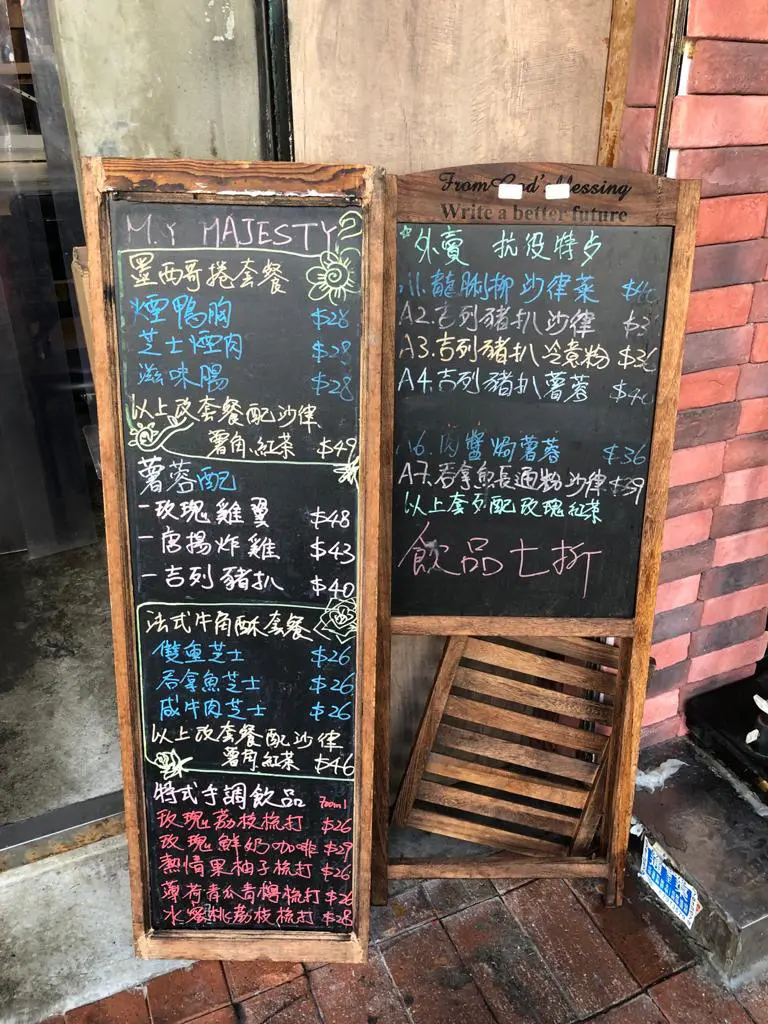 M.Y MAJESTY
墨西哥捲套餐
煙鴨胸 $28
芝士煙肉 $28
滋味腸 $28
以上改套餐配沙律
薯角、紅茶 $49
薯蓉配
-玫瑰雞翼 $48
-唐揚炸雞 $43
-吉列豬扒 $40
法式牛角酥套餐
雙魚芝士 $26
吞拿魚芝士 $26
咸牛肉芝士 $26
以上改套餐配沙律
薯角紅茶 $46
特式手調飲品 700ml
玫瑰荔枝梳打 $26
玫瑰鮮奶咖啡 $29
熱情果柚子梳打 $26
薄荷青瓜青檸梳打 $26
水蜜桃荔枝梳打 $28
From God's blessing
Write a better future
*外賣 抗疫特步
龍脷柳沙律菜
A2.吉列豬扒沙律
A3.吉列豬扒冷意粉
A4.吉列豬扒薯蓉
肉醬焗薯蓉 $36
A7.吞拿魚長通粉沙律 $39
以上套列配玫瑰紅茶
飲品七折